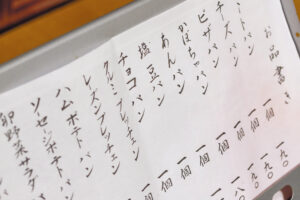 お品書き
ミートパン 一個 一九〇
チーズパン 一個 一九〇
ピザパン 一個 一九〇
かぼちゃパン 一個 一八〇
あんパン 一個
塩豆パン 一個
チョコパン 一個
クルミブレッチェン
レーズンブレッチェン
ハムポテトパン
ソーセージポテトパン
卵野菜サラダ